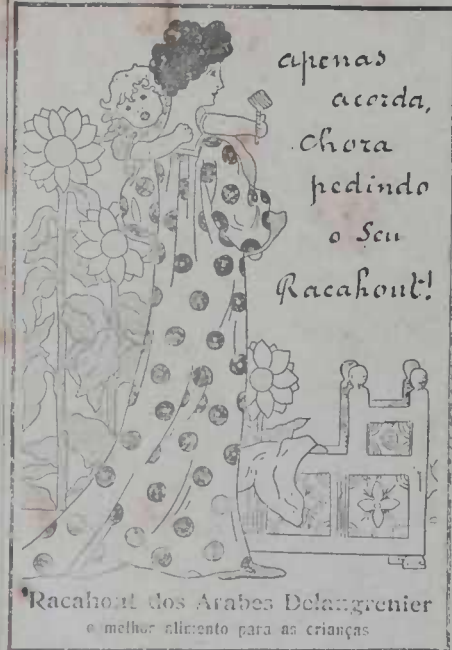 apenas
acorda,
Chora
pedindo
o Seu
Racahout!
Racahout dos Arabes Delangrenier
o melhor alimento para as crianças